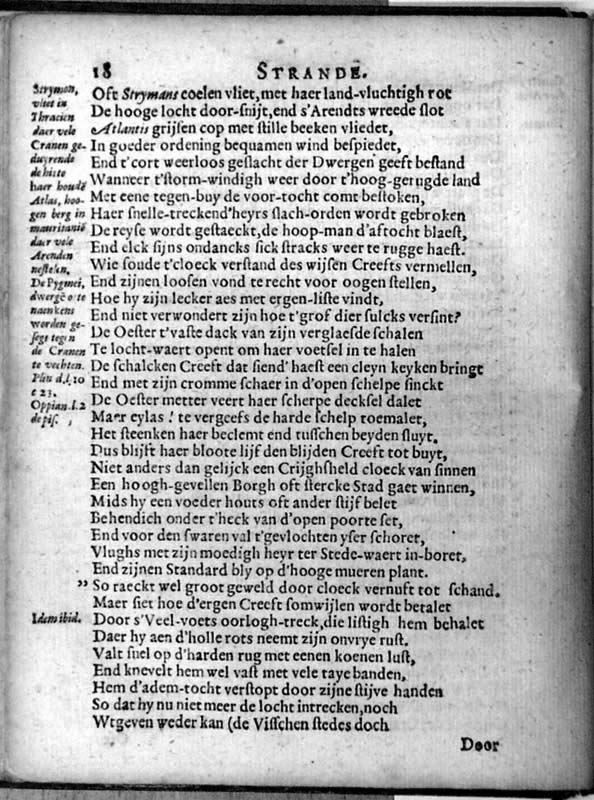 18 STRANDE.
Strymon,
vliet in
Thracien
daer vele
Cranen ge-
duyrende
de histo
haer houdē
Atlas, hoo-
gen berg in
mauritaniē
daer vele
Arenden
nestelen.
De Pygmei,
dwergē oste
naenkens
worden ge-
segt tegen
de Cranen
te vechten.
Plin d.l.10
c 23.
Oppian.l.2
de pis.
Oft Strymans coelen vliet, met haer land-vluchtigh rot
De hooge locht door-snijt, end s'Arendts wreede slot
Atlantis grijsen cop met stille beeken vliedet,
In goeder ordening bequamen wind bespiedet,
End t'cort weerloos geslacht der Dwergen geeft bestand
Wanneer t'storm-windigh weer door t'hoog-gerugde land
Met eene tegen-buy de voor-tocht comt bestoken,
Haer snelle-treckend'heyrs slach-orden wordt gebroken
De reyse wordt gestaeckt, de hoop-man d'aftocht blaest,
End elck sijns ondancks sick stracks weer te rugge haest.
Wie soude t'cloeck verstand des wijsen Creefts vermellen,
End zijnen loosen vond te recht voor oogen stellen,
Hoe hy zijn lecker aes met ergen-liste vindt,
End niet verwondert zijn hoe t'grof dier sulcks versint?
De Oester t'vaste dack van zijn verglaesde schalen
Te locht-waert opent om haer voetsel in te halen
De schalcken Creeft dat siend' haest een cleyn keyken bringt
End met zijn cromme schaer in d'open schelpe sinckt
De Oester metter veert haer scherpe decksel dalet
Maer eylas! te vergeefs de harde schelp toemalet,
Het steenken haer beclemt end tusschen beyden sluyt.
Dus blijft haer bloote lijf den blijden Creeft tot buyt,
Niet anders dan gelijck een Crijghsheld cloeck van sinnen
Een hoogh-gevellen Borgh oft stercke Stad gaet winnen,
Mids hy een voeder houts oft ander stijf belet
Behendich onder t'heck van d'open poorte set,
End voor den swaren val t'gevlochten yser schoret,
Vlughs met zijn moedigh heyr ter Stede-waert in-boret,
End zijnen Standard bly op d'hooge mueren plant.
” So raeckt wel groot geweld door cloeck vernuft tot schand.
Maer siet hoe d'ergen Creeft somwijlen wordt betalet
Idem ibid. Door s'Veel-voets oorlogh-treck, die listigh hem behalet
Daer hy aen d'holle rots neemt zijn onvrye rust.
Valt snel op d'harden rug met eenen koenen lust,
End knevelt hem wel vast met vele taye banden,
Hem d'adem-tocht verstopt door zijne stijve handen
So dat hy nu niet meer de locht intrecken, noch
Wtgeven weder kan (de Visschen stedes doch
Door